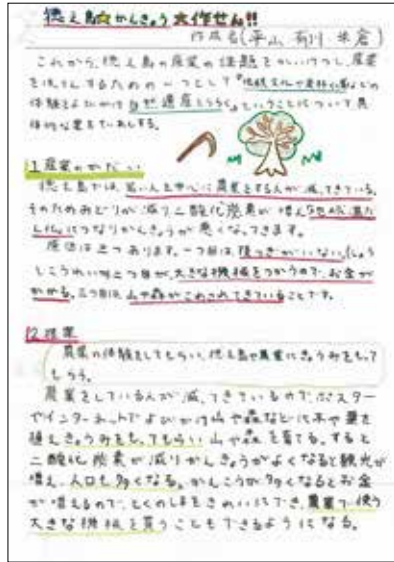 徳之島☆かんきょう大作せん!!
作成者(平山 有川 米倉)
これから、徳之島の産業の課題をかいけつし、産業
を
するための一つとして『伝統文化や
などの
体験をよびかけ自然遺産をつらぬく』ということについて具
体的な案をていあんする。
1 産業のかだい
徳之島では、若い人を中心に農業をする人が減ってきている。
そのためみどりが減り二酸化炭素が増え地球温だん
化につながりかんきょうが悪くなってきます。
原因は三つあります。一つ目は、後つぎがいない。(しょう
しこうれい化)二つ目が、大きな機械をつかうので、お金が
かかる。三つ目は、山や森がこわされてきていることです。
2 提案
農業の体験をしてもらい、徳之島や農業にきょうみをもって
もらう。
農業をしている人が減ってきているのでポスター
やインターネットでよびかけ山や森などに木や葉を
植えきょうみをもってもらい山や森を育てる。すると
二酸化炭素が減りかんきょうがよくなると観光が
増え、人口も多くなる。かんこうが多くなるとお金
が増えるので、とくのしまをきれいにでき、農業で使う
大きな機械を買うこともできるようになる。